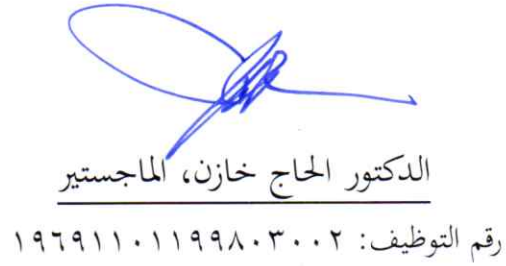 الدكتور الحاج خازن، الماجستير
رقم التوظيف: ١٩٦٩١١٠١١٩٩٨٠٣٠٠٢